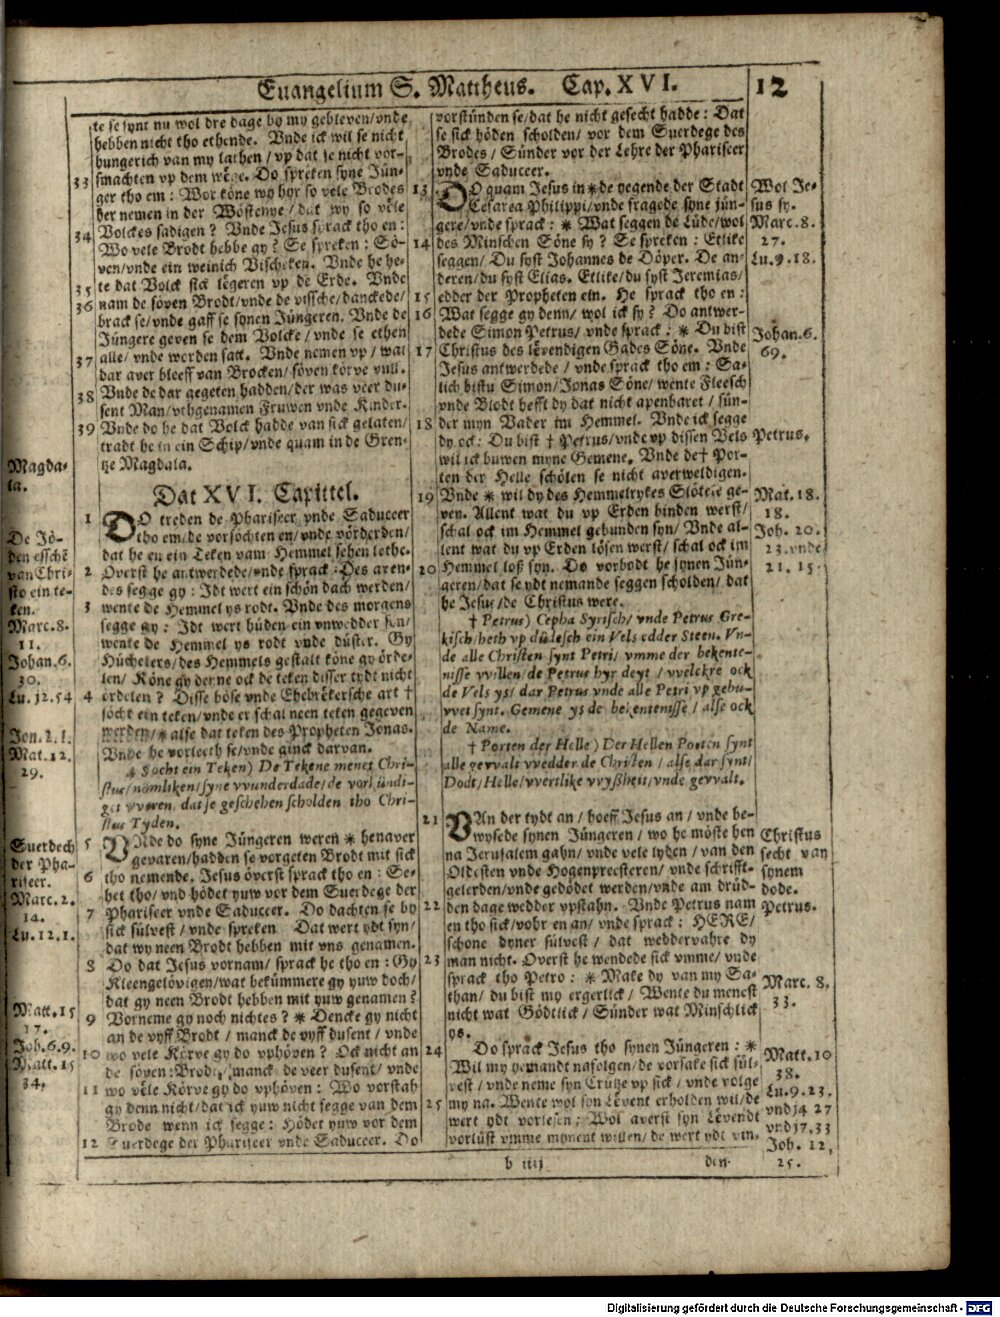 Euangelium S. Mattheus. Cap. XVI. 12
te se synt nu wol dre dage by my gebleven/vnde
hebben nicht tho ethende. Vnde ick wil se nicht
hungerich van my lathen / vp dat se nicht vor-
33 smachten vp dem wege. Do spreken syne Jün-
ger tho em: Wor köne wy hyr so vele Brodes
her nemen in der Wöstenye / dat wy so vele
34 Volckes sadigen? Vnde Jesus sprack tho en:
Wo vele Brodt hebbe gy? Se spreken: Sö-
ven/vnde ein weinich Vischeken. Vnde he he-
35 te dat Volck sick lögeren vp de Erde. Vnde
36 nam de söven Brodt/vnde de vissche/danckede/
brack se/vnde gaff se synen Jüngeren. Vnde de
Jüngere geven se dem Volcke / vnde se ethen
37 alle/ vnde worden satt. Vnde nemen vp / wat
dar aver bleeff van Brocken/söven körve vull.
38 Vnde de dar gegeten hadden/der was veer du-
sent Man/vthgenamen Fruwen vnde Kinder.
39 Vnde do he dat Volck hadde van sick gelaten/
tradt he in ein Schip/vnde quam in de Gren-
tze Magdala.
Magda-
la.
Dat XVI. Capittel.
1 DO treden de Phariseer vnde Saduceer
tho em/de vorsöchten en/vnde vörderden/
dat he en ein Teken vam Hemmel sehen lethe.
2 Överst he antwerdede/vnde sprack: Des aven-
des segge gy: Idt wert ein schön dach werden/
3 wente de Hemmel ys rodt. Vnde des morgens
segge gy: Idt wert hüden ein vnwedder syn/
wente de Hemmel ys rodt vnde düster. Gy
Hüchelers/des Hemmels gestalt köne gy örde-
len/ Köne gy denne ock de teken disser tydt nicht
4 ordelen? Disse böse vnde Ehebrökersche art †
söcht ein teken/vnde er schal neen teken gegeven
werden/* alse dat teken des Propheten Jonas.
Vnde he vorleeth se/vnde ginck darvan.
Socht ein Teken) De Tekene menet Chri-
stus/nömliken/syne vvunderdade/de vorkündi-
get vveren, dat se geschehen scholden tho Chri-
stus Tyden.
5 VNde do syne Jüngeren weren * henaver
gevaren/hadden se vorgeten Brodt mit sick
6 tho nemende. Jesus överst sprack tho en: Se-
het tho/ vnd hödet yuw vor dem Suerdege der
7 Phariseer vnde Saduceer. Do dachten se by
sick sülvest / vnde spreken Dat wert ydt syn/
dat wy neen Brodt hebben mit vns genamen.
8 Do dat Jesus vornam/ sprack he tho en: Gy
Kleengelövigen/wat bekümmere gy yuw doch/
dat gy neen Brodt hebben mit yuw genamen?
9 Vorneme gy noch nichtes? * Dencke gy nicht
an de vyff Brodt / manck de vyff dusent / vnde
10 wo vele Körve gy do vphöven? Ock nicht an
de söven Brodt / manck de veer dusent/ vnde
11 wo vele Körve gy do vphöven: Wo vorstah
gy denn nicht/dat ick yuw nicht segge van dem
Brode wenn ick segge: Hödet yuw vor dem
12 Suerdege der Phariseer vnde Saduceer. Do
De Jö-
den esschē
van Chri-
sto ein te-
ken.
Marc. 8.
11.
Johan. 6.
30.
Lu. 12. 54
Jon. 2. 1.
Mat. 12.
29.
Suerdech
der Pha-
riseer.
Marc. 2.
14.
Lu. 12, 1.
Matt. 15
17.
Joh. 6. 9.
Matt. 15
34.
vorstünden se/dat he nicht gesecht hadde: Dat
se sick höden scholden/ vor dem Suerdege des
Brodes / Sünder vor der Lehre der Phariseer
vnde Saduceer.
13 DO quam Jesus in * de yegende der Stadt
Cesarea Philippi/vnde fragede syne jün-
gere/vnde sprack: * Wat seggen de Lüde/wol
14 des Minschen Söne sy? Se spreken: Etlike
seggen/ Du syst Johannes de Döper. De an-
deren/du syst Elias. Etlike/du syst Jeremias/
15 edder der Propheten ein. He sprack tho en:
16 Wat segge gy denn/ wol ick sy? Do antwer-
dede Simon Petrus/ vnde sprack: * Du bist
17 Christus des lëvendigen Gades Söne. Vnde
Jesus antwerdede / vnde sprack tho em: Sa-
lich bistu Simon/Jonas Söne/ wente Fleesch
vnde Blodt hefft dy dat nicht apenbaret / sün-
18 der myn Vader im Hemmel. Vnde ick segge
dy ock: Du bist † Petrus/vnde vp dissen Vels
wil ick buwen myne Gemene. Vnde de † Por-
ten der Helle schölen se nicht averweldigen.
19 Vnde * wil dy des Hemmelrykes Slötele ge-
ven. Allent wat du vp Erden binden werst/
schal ock im Hemmel gebunden syn/ Vnde al-
lent wat du vp Erden lösen werst/ schal ock im
20 Hemmel loß syn. Do vorbodt he synen Jün-
geren/dat se ydt nemande seggen scholden/ dat
he Jesus/de Christus were.
† Petrus) Cepha Syrisch/ vnde Petrus Gre-
kisch/heth vp düdesch ein Vels edder Steen. Vn-
de alle Christen synt Petri/ vmme der bekente-
nisse vvillen/de Petrus hyr deyt / vvelckre ock
de Vels ys/ dar Petrus vnde alle Petri vp gebu-
vvet synt. Gemene ys de bekentenisse / alse ock
de Name.
† Porten der Helle) Der Hellen Porten synt
alle gevvalt vvedder de Christen / alse dar synt/
Dodt/Helle/vvertlike vvyßheit/vnde gevvalt.
21 VAn der tydt an / hoeff Jesus an / vnde be-
wysede synen Jüngeren / wo he möste hen
na Jerusalem gahn/ vnde vele lyden / van den
Oldesten vnde Hogenpreesteren/ vnde schrifft-
gelerden/vnde gedödet werden/vnde am drüd-
22 den dage wedder vpstahn. Vnde Petrus nam
en tho sick/vohr en an/ vnde sprack: HERE/
schone dyner sülvest / dat weddervahre dy
23 man nicht. Överst he wendede sick vmme/ vnde
sprack tho Petro: * Make dy van my Sa-
than/ du bist my ergerlick / Wente du menest
nicht wat Gödtlick / Sünder wat Minschlick
ys.
24 Do sprack Jesus tho synen Jüngeren: *
Wil my yemandt nafolgen/de vorsake sick sül-
vest / vnde neme syn Crütze vp sick / vnde volge
25 my na. Wente wol syn Lëvent erholden wil/de
wert ydt vorlesen: Wol averst syn Lëvendt
vorlüst vmme mynent willen/ de wert ydt vin-
Wol Je-
sus sy.
Marc. 8.
27.
Lu. 9. 18.
Johan. 6.
69.
Petrus.
Mat. 18.
18.
Joh. 20.
23. vnde
21. 15
Christus
secht van
synem
dode.
Petrus.
Marc. 8.
33.
Matt. 10
38.
Lu. 9. 23.
vnd 14 27
vnd 17, 33
Joh. 12,
25.
b iiij den
Digitalisierung gefördert durch die Deutsche Forschungsgemeinschaft - DFG